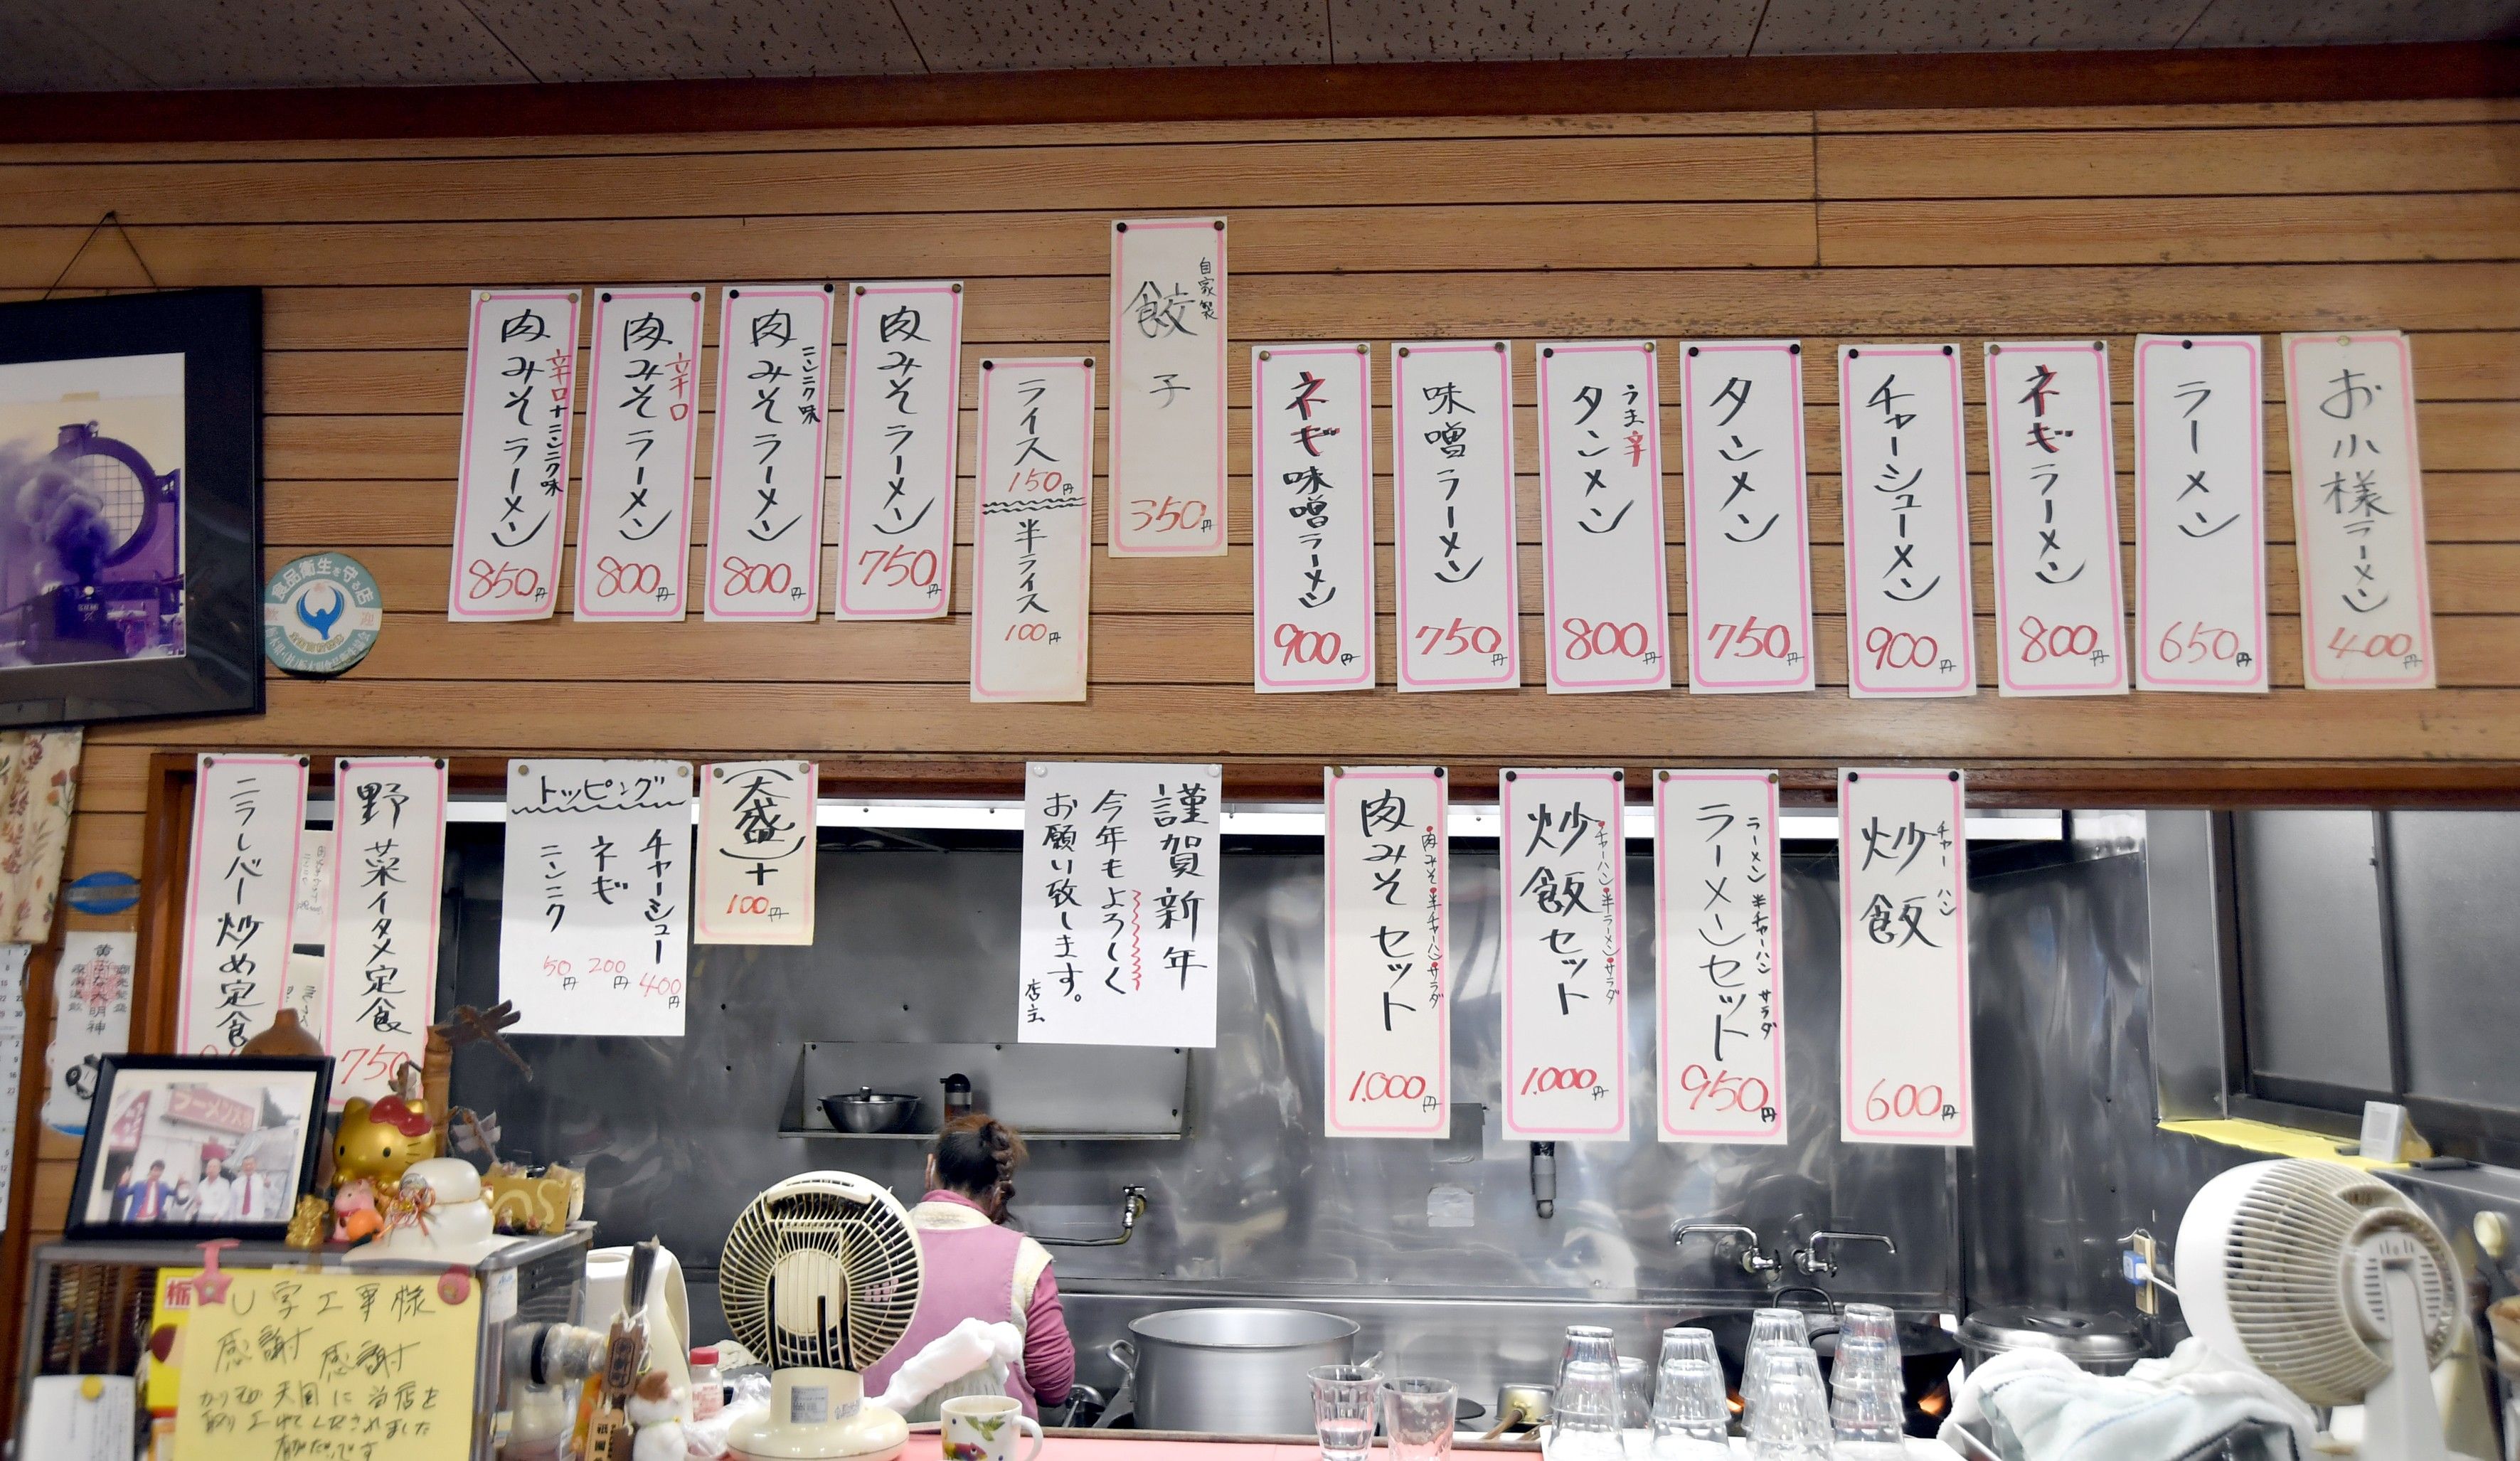 お小様ラーメン
400円
ラーメン
650円
ネギラーメン
800円
チャーシューメン
900円
タンメン
750円
うま辛
タンメン
800円
味噌ラーメン
750円
ネギ味噌ラーメン
900円
自家製
餃子
350円
ライス
150円
半ライス
100円
肉みそラーメン
750円
ニンニク味
肉みそラーメン
800円
辛口
肉みそラーメン
800円
辛口+ニンニク味
肉みそラーメン
850円
食品衛生を守る店
チャーハン
炒飯
600円
ラーメン 半チャーハン サラダ
ラーメンセット
950円
チャーハン 半ラーメン サラダ
炒飯セット
1.000円
肉みそ 半チャーハン サラダ
肉みそセット
1.000円
謹賀新年
今年もよろしく
お願い致します。
店主
(大盛)+
100円
トッピング
チャーシュー
400円
ネギ
200円
ニンニク
50円
野菜イタメ定食
750
ニラレバー炒め定食
栃
U字工事様
感謝 感謝
天国に当店を